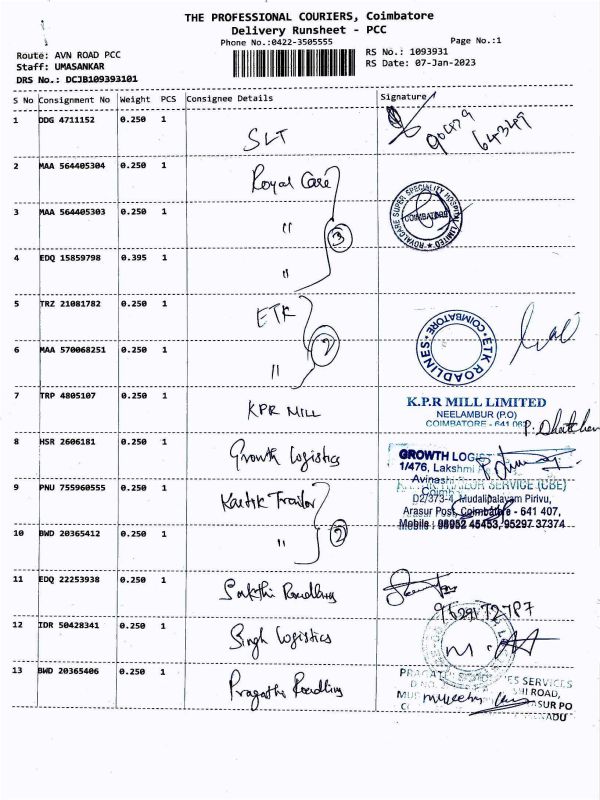 THE PROFESSIONAL COURIERS, Coimbatore
Delivery Runsheet - PCC
Phone No.:0422-3505555 Page No.:1
Route: AVN ROAD PCC RS No.: 1093931
Staff: UMASANKAR RS Date: 07-Jan-2023
DRS No.: DCJB109393101
S No Consignment No Weight PCS Consignee Details Signature
1 DDG 4711152 0.250 1 SLT
2 MAA 564405304 0.250 1 Royal Care
ROYALCARE SUPER SPECIALITY HOSPITAL LIMITED
COIMBATORE
3 MAA 564405303 0.250 1 "
3
4 EDQ 15859798 0.395 1 "
5 TRZ 21081782 0.250 1 ETK
ETK ROADLINES COIMBATORE
2
6 MAA 570068251 0.250 1 "
7 TRP 4805107 0.250 1 KPR MILL
K.P.R MILL LIMITED
NEELAMBUR (P.O)
COIMBATORE - 641 062
8 HSR 2606181 0.250 1 Growth Logistics
GROWTH LOGIST
1/476, Lakshmi
Avinashi
9 PNU 755960555 0.250 1 Kartik Trailor
TRAILOR SERVICE (CBE)
D2/373-4, Mudalipalayam Pirivu,
Arasur Post, Coimbatore - 641 407,
Mobile : 98952 45453, 95297 37374
10 BWD 20365412 0.250 1 "
2
11 EDQ 22253938 0.250 1 Sakthi Roadlines
12 IDR 50428341 0.250 1 Singh Logistics
13 BWD 20365406 0.250 1 Pragathi Roadlines
SERVICES
ROAD,
ASUR PO
NADU